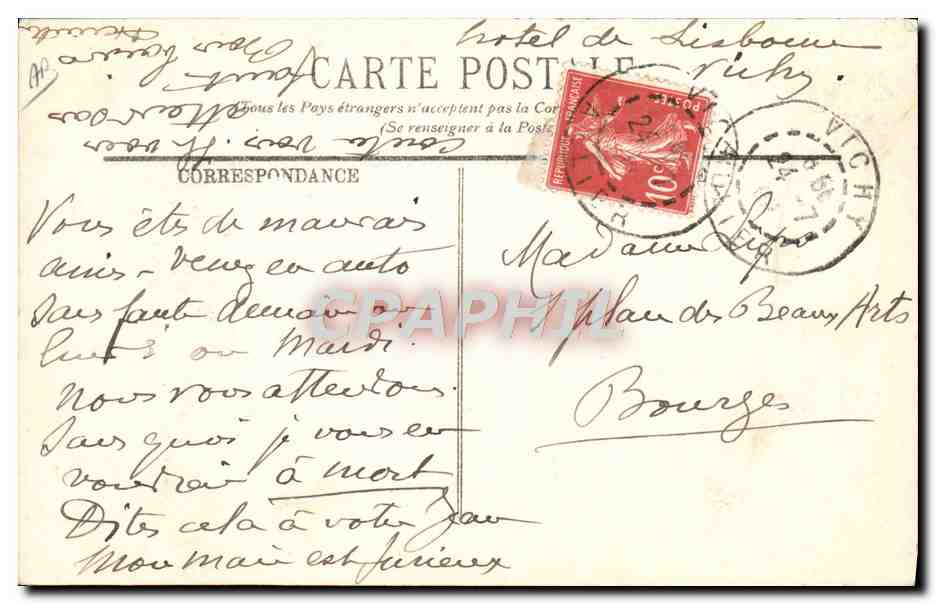 hotel de Lisbonne
Vichy.
CARTE POSTALE
Tous les Pays étrangers n'acceptent pas la Cor
(Se renseigner à la Poste
CORRESPONDANCE
RÉPUBLIQUE FRANÇAISE
POSTES
10 c
VICHY
24 -7
ALLIER
Vous êtes de mauvais
amis - Venez en auto
sans faute demain ou
lundi ou Mardi.
Nous vous attendons.
Sans quoi je vous en
voudrai à mort
Dites cela à votre Jean
Mon mari est furieux
Madame
place des Beaux Arts
Bourges
CPAPHIL